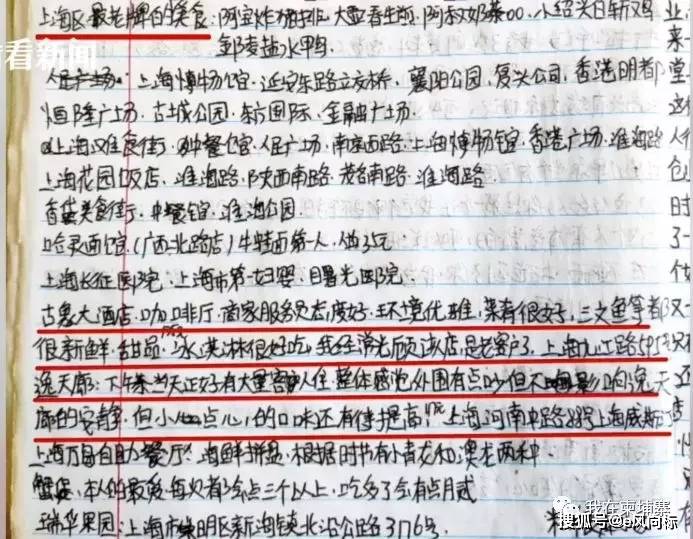 看看新闻
上海区最老牌的美食:阿宝炸猪排、大壶春生煎、阿叔奶茶00、小绍兴白斩鸡
邹陵盐水鸭
人民广场、上海博物馆、延安东路立交桥、襄阳公园、复兴公司、香港明都
恒隆广场、古城公园、东方国际、金融广场
上海汉维食街、中餐馆、人民广场、南京西路、上海博物馆、香港广场、淮海路
上海花园饭店、淮海路、陕西南路、茂名南路、淮海路
美食街、中餐馆、淮海公园
哈灵面馆(广西北路店)牛特面第一人、做25元
上海长征医院、上海市第一妇婴、曙光医院
古象大酒店、咖啡厅、商家服务员态度好、环境优雅、菜肴很好、三文鱼等都
很新鲜、甜品、冰淇淋很好吃、我经常光顾该店、是老客户了、上海九江路595号
逸天廊:下午茶当天正好有大量客人住、整体感觉外围有点吵但不影响逸天
廊的安静、但小点心的口味还有待提高、上海河南中路 上海威斯
上海万易自助餐厅:海鲜拼盘、根据时节有小青龙和澳龙两种
蟹滚、本人的最爱每次有 点三个以上、吃多了会有点月贰
瑞华果园:上海市崇明区新海镇北沿公路3176号
我在柬埔寨
搜狐号@B风向标